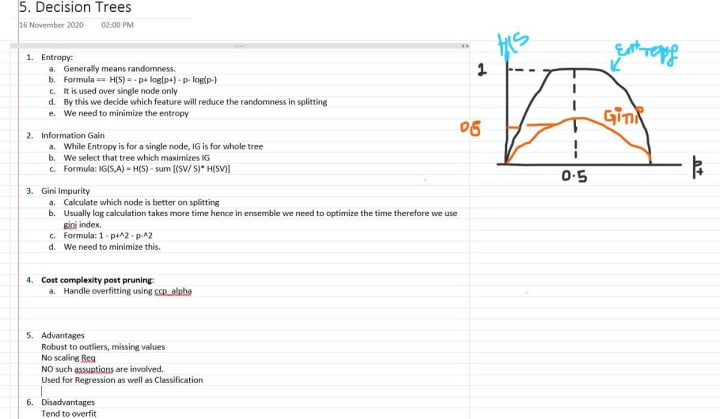 5. Decision Trees
16 November 2020 02:00 PM
1. Entropy:
a. Generally means randomness.
b. Formula == H(S) = - p+ log(p+) - p- log(p-)
c. It is used over single node only
d. By this we decide which feature will reduce the randomness in splitting
e. We need to minimize the entropy
2. Information Gain
a. While Entropy is for a single node, IG is for whole tree
b. We select that tree which maximizes IG
c. Formula: IG(S,A) = H(S) - sum [(SV/ S)* H(SV)]
3. Gini Impurity
a. Calculate which node is better on splitting
b. Usually log calculation takes more time hence in ensemble we need to optimize the time therefore we use
gini index.
c. Formula: 1 - p+^2 - p-^2
d. We need to minimize this.
4. Cost complexity post pruning:
a. Handle overfitting using ccp_alpha
5. Advantages
Robust to outliers, missing values
No scaling Req
NO such assuptions are involved.
Used for Regression as well as Classification
6. Disadvantages
Tend to overfit
H(S
Entropy
1
Gini
0.5
0.5
P+